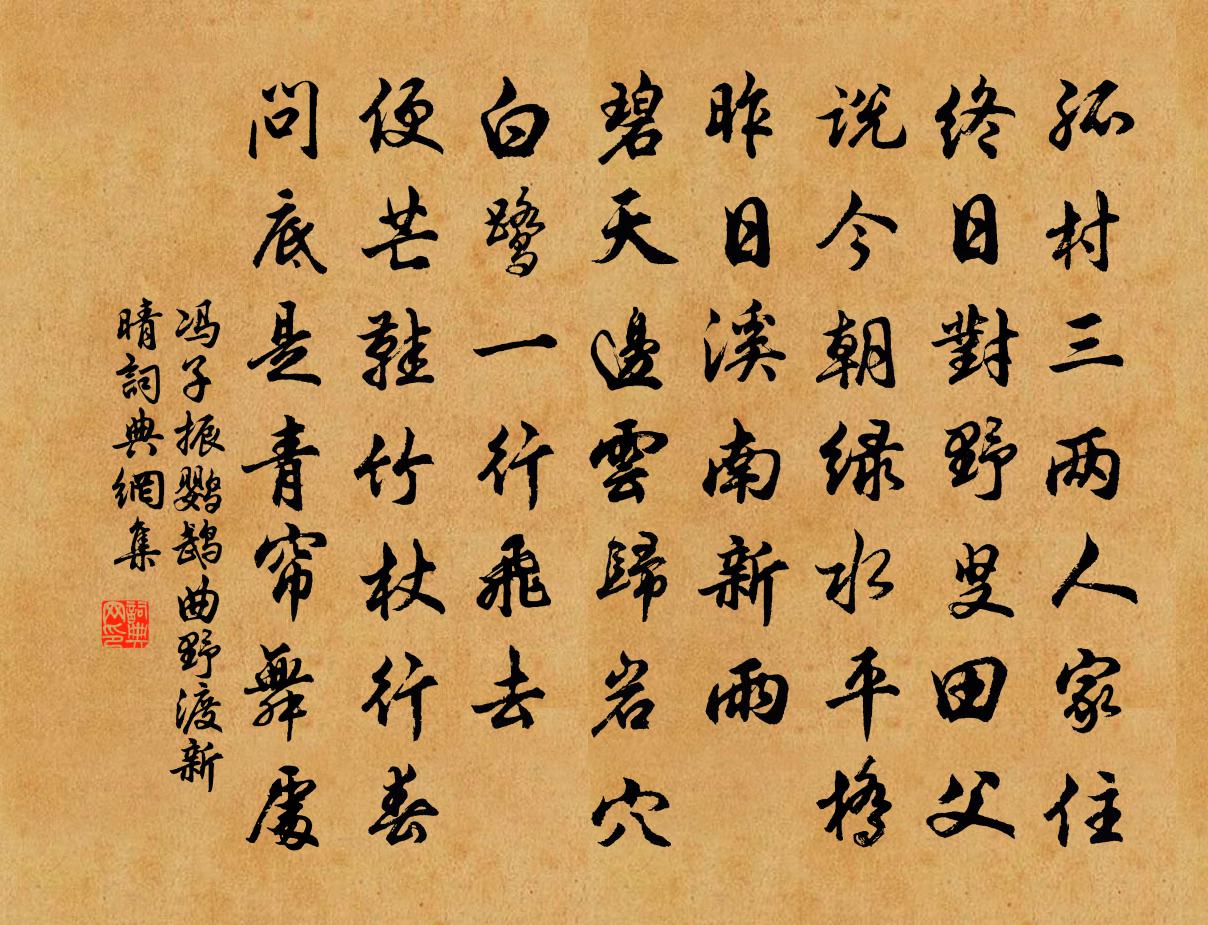 孤村三两人家住
终日對野叟田父
说今朝绿水平橋
昨日溪南新雨
碧天邊雲歸岩穴
白鹭一行飛去
便芒鞋竹杖行春
問底是青帘舞處
冯子振鹦鹉曲野渡新
晴詞典網集
詞典网印